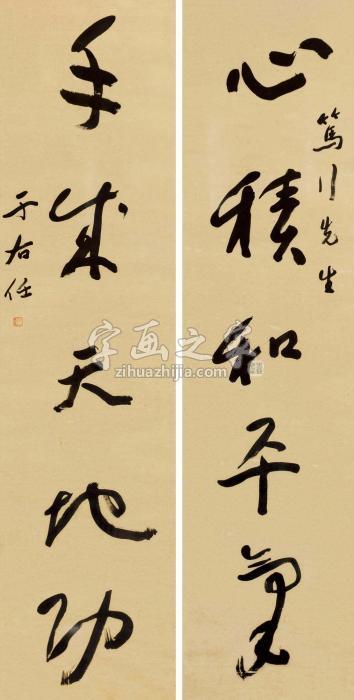 篤行先生
心積和平氣
手成天地功
于右任
字画之家
zihuazhijia.com